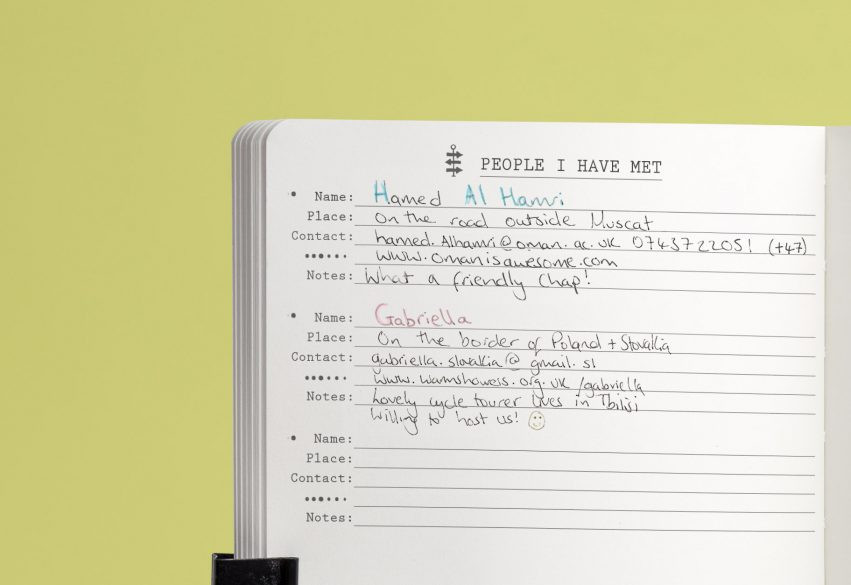 PEOPLE I HAVE MET
Name: Hamed Al Hamri
Place: On the road outside Muscat
Contact: hamed.Alhamri@oman.ac.uk 0743722051 (+47)
www.omanisawesome.com
Notes: What a friendly Chap!
Name: Gabriella
Place: On the border of Poland + Slovakia
Contact: gabriella.slovakia@gmail.sl
www.warmshowers.org.uk/gabriella
Notes: Lovely cycle tourer lives in Tbilisi
Willing to host us!
Name:
Place:
Contact:
Notes: